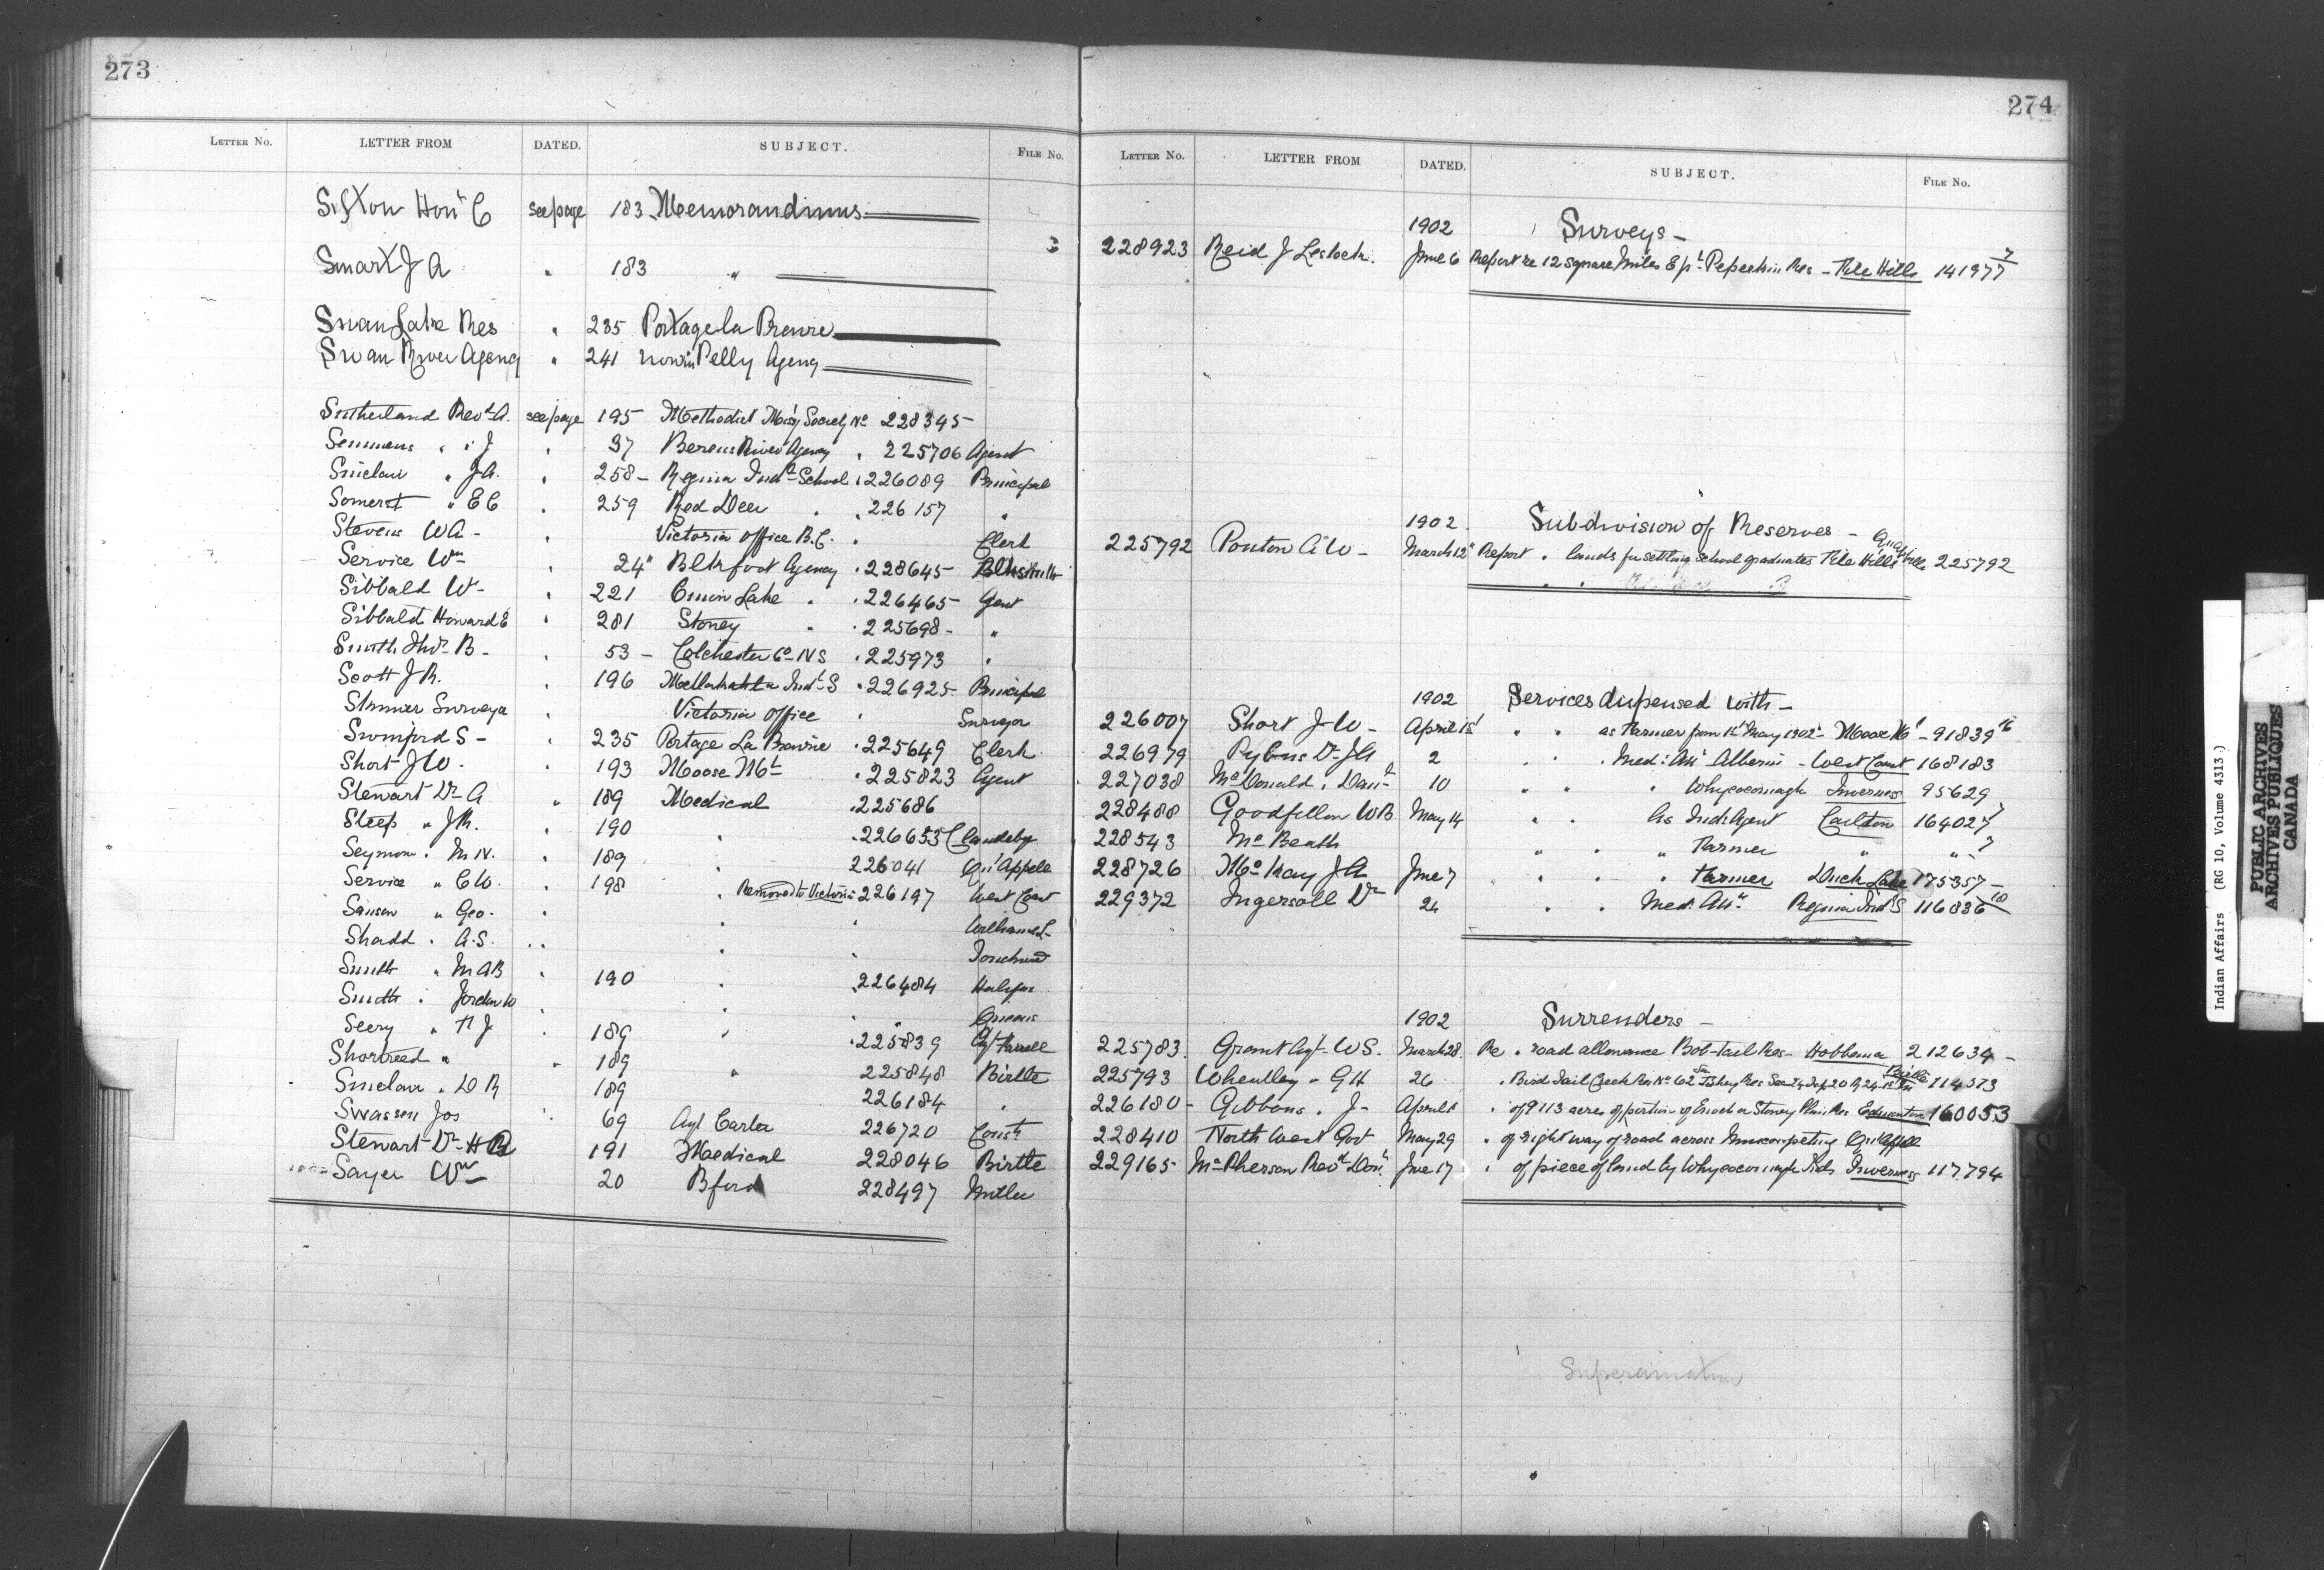 273
LETTER No. LETTER FROM DATED. SUBJECT. FILE No.
Sifton Hon C see page 183 Memorandums
Smart J A " 183 "
Swan Lake Res " 235 Portage la Prairie
Swan River Agency " 241 now in Pelly Agency
Sutherland Revd A. see page 195 Methodist Miss'y Society No 228345
Semmens " " J " 37 Berens River Agency " 225706 Agent
Sinclair " J.A. " 258 - Regina Indl School " 226089 Principal
Somerset " E C " 259 Red Deer " " 226157 "
Stevens W A - " Victoria Office B.C. " Clerk
Service Wm " 24 Blkfoot Agency " 228645 Blksmith
Sibbald W - " 221 Onion Lake " " 226465 Agent
Sibbald Howard E " 281 Stoney " " 225698 - "
Smith Thos B - " 53 - Colchester Co N S " 225973 "
Scott J R. " 196 Metlakahtla Indl S " 226925 Principal
Skinner Surveyor " Victoria Office " Surveyor
Swinford S - " 235 Portage La Prairie " 225649 Clerk
Short J W. " 193 Moose Mt " 225823 Agent
Stewart Dr A " 189 Medical " 225686
Steep " J R. " 190 " " 226653 Clandeboye
Seymour " M N. " 189 " 226041 Qu'Appelle
Service " C W. " 198 " Removed to Victoria 226197 West Coast
Sanson " Geo. " " " Williams L-
Shadd " A.S. " " " " Touchwood
Smith " M A B " 190 " 226484 Halifax
Smith " Jordan W " " " Queens
Seery " H J " 189 " " 225839
Shortreed " " 189 " 225848 Birtle
Sinclair " D R 189 226184 "
Swassen Jos " 69 Agt Carter 226720 Const
Stewart Dr H 191 Medical 228046 Birtle
Sayer Wm 20 Bford 228497 Miller
274
LETTER No. LETTER FROM DATED. SUBJECT. FILE No.
1902 Surveys -
228923 Reid J Lestock. June 6 Report re 12 square miles Ept Pepeekin Res - File Hills 141977 7
1902 Subdivision of Reserves -
225792 Ponton A W - March 12 Report " lands for settling school graduates File Hills Qu'Appelle 225792
1902 Services dispensed with -
226007 Short J W - April 1st " " as Farmer from 1st May 1902 - Moose Mt - 91839 16
226979 Pybus Dr J A 2 " " " Med: Att Alberni - West Coast 168183
227038 McDonald " Danl 10 " " " Whycocomagh Inverness 95629
228488 Goodfellow W B May 14 " " As Ind: Agent Carlton 164027 7
228543 McBeath " " " Farmer " " 7
228726 McKay J A June 7 " " " Farmer Duck Lake 175357 -
229372 Ingersoll Dr 24 " " Med. Att Regina Indl S 116836 10
1902 Surrenders -
225783 Grant Agt W S. March 28. Re " road allowance Bob-tail Res - Hobbema 212634 -
225793 Wheatley " G H 26 " Bird Tail Creek Res No 62 Fishing Res Sec 24 Tp 20 R 24 Birtle 114573
226180 - Gibbons " J - April 1 " of 9113 acres of portion of Enoch or Stoney Plain Res Edmonton 160053
228410 North West Gov May 29 " of right way of road across Muscowpetung Qu'Appelle
229165 McPherson Revd Don June 17 " of piece of land by Whycocomagh Inds Inverness 117.794
Superannuation
Indian Affairs (RG 10, Volume 4313)
PUBLIC ARCHIVES
ARCHIVES PUBLIQUES
CANADA